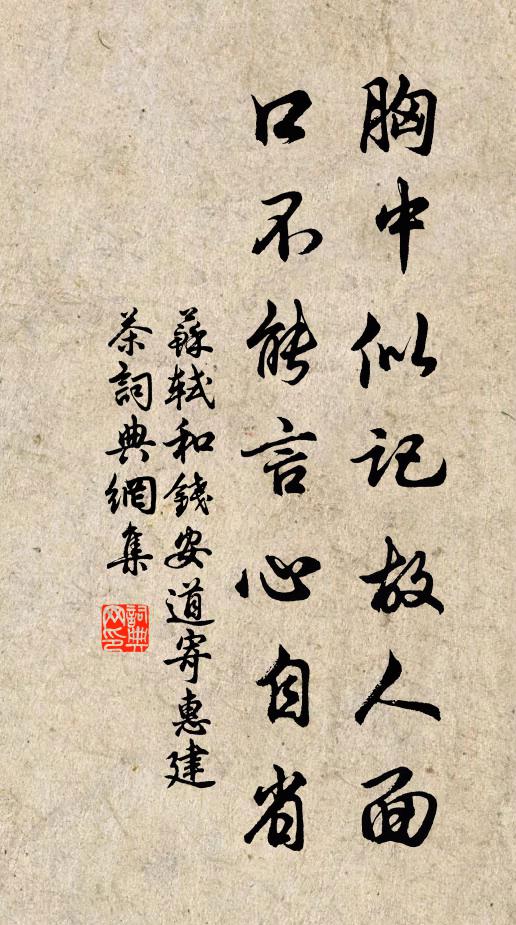 胸中似记故人面
口不能言心自省
蘇軾和錢安道寄惠建
茶詞典網集
詞典網印